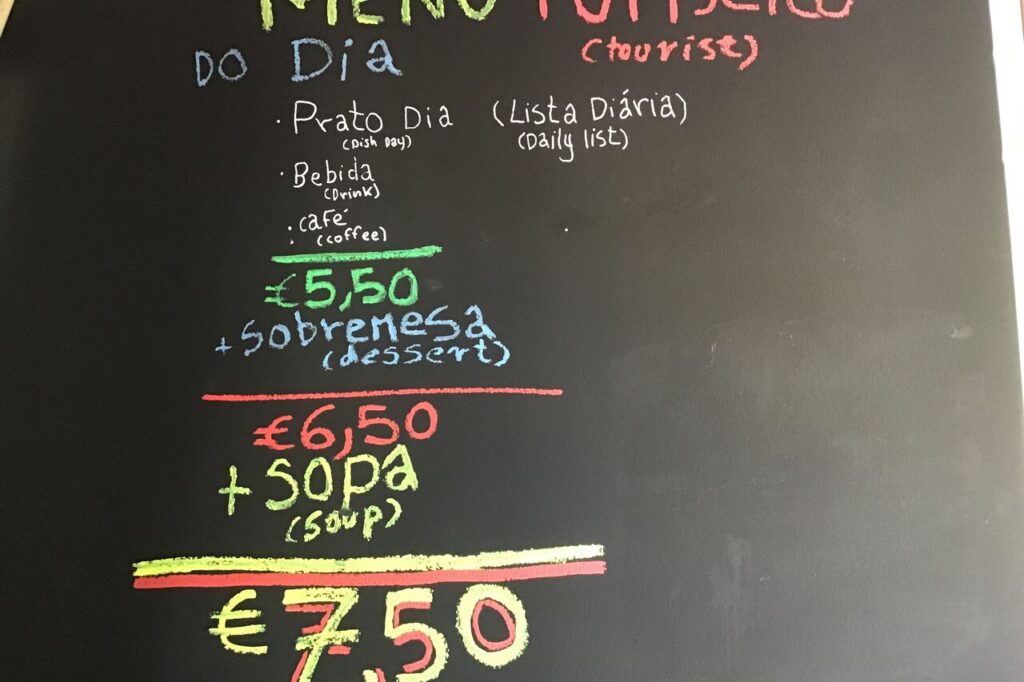 MENU TURÍSTICO
DO Dia (tourist)
· Prato Dia (Lista Diária)
(Dish Day) (Daily list)
· Bebida
(Drink)
· café
(coffee)
€5,50
+ Sobremesa
(dessert)
€6,50
+ Sopa
(Soup)
€7,50